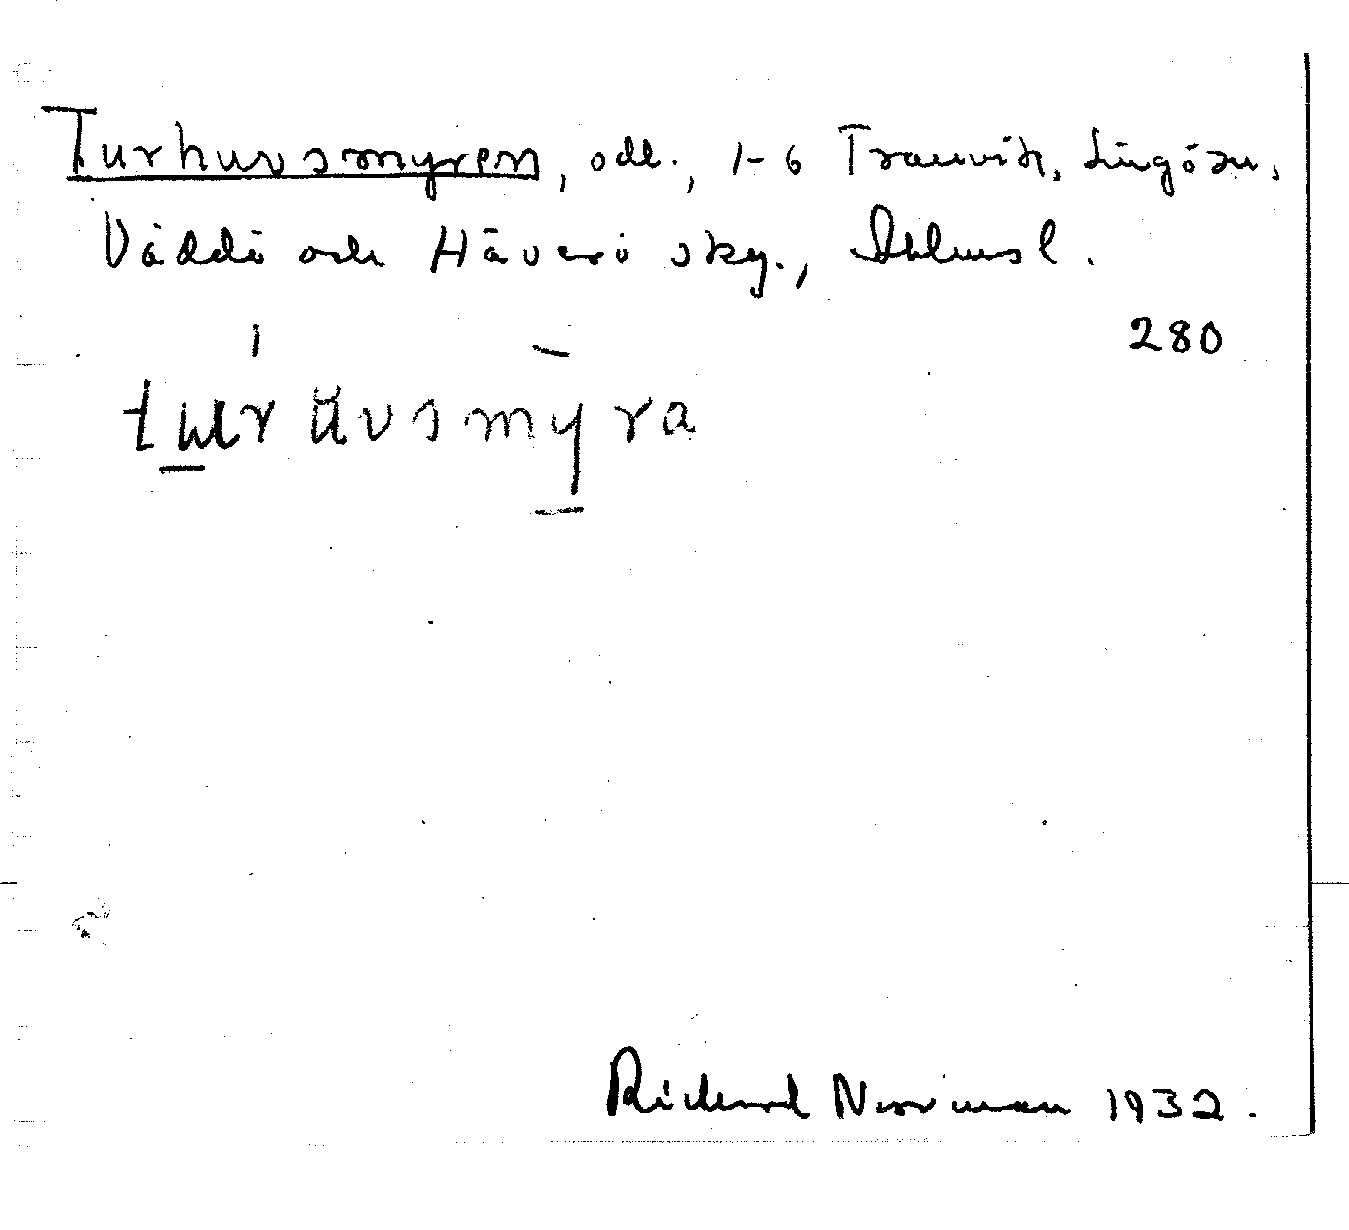 Turhuvsmyren, odl., 1-6 Tranvik, Lingösn,
Väddö och Häverö skg., Sthlms l.
280
turuvsmyra
Rickard Norrman 1932.